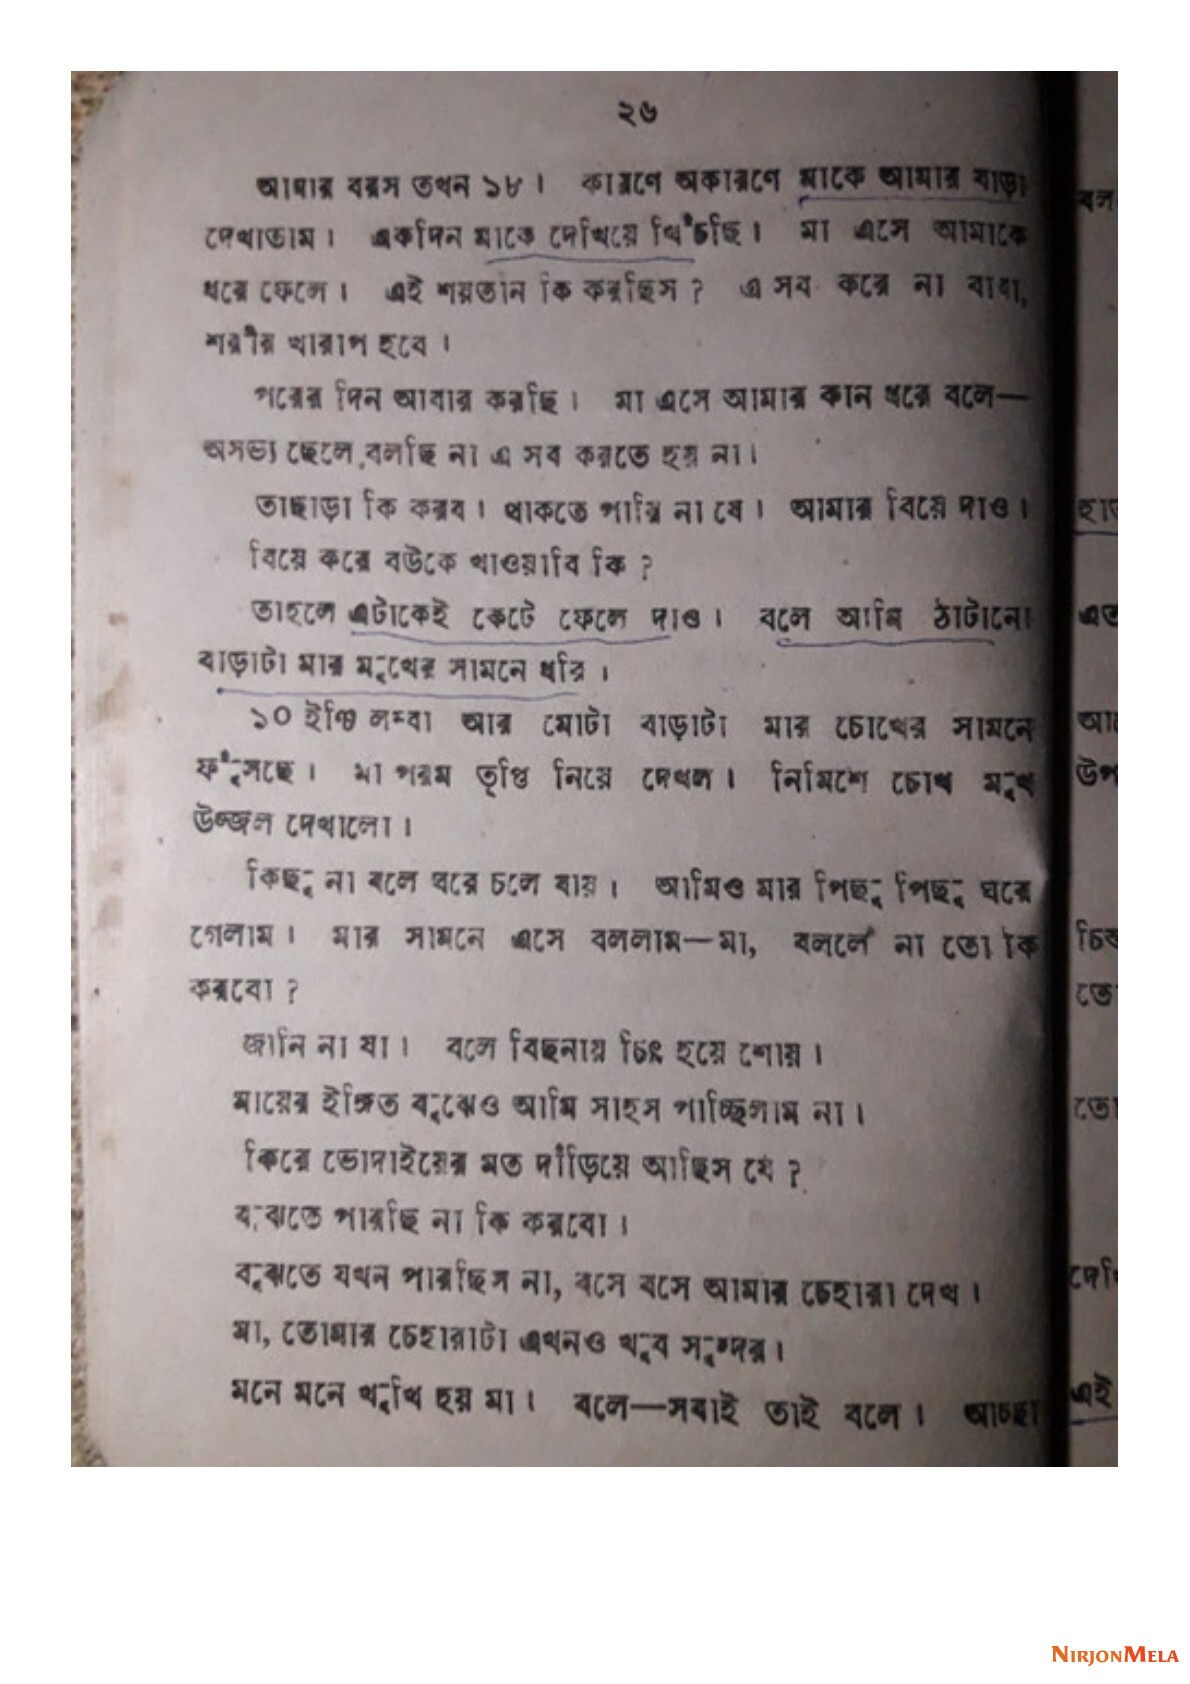 ২৬
আমার বয়স তখন ১৮। কারণে অকারণে মাকে আমার বাড়া
দেখাতাম। একদিন মাকে দেখিয়ে খিঁচছি। মা এসে আমাকে
ধরে ফেলে। এই শয়তান কি করছিস? এ সব করে না বাবা,
শরীর খারাপ হবে।
পরের দিন আবার করছি। মা এসে আমার কান ধরে বলে—
অসভ্য ছেলে, বলছি না এ সব করতে হয় না।
তাছাড়া কি করব। থাকতে পারি না যে। আমার বিয়ে দাও।
বিয়ে করে বউকে খাওয়াবি কি?
তাহলে এটাকেই কেটে ফেলে দাও। বলে আমি ঠাটানো
বাড়াটা মার মুখের সামনে ধরি।
১০ ইঞ্চি লম্বা আর মোটা বাড়াটা মার চোখের সামনে
ফুঁসছে। মা পরম তৃপ্তি নিয়ে দেখল। নিমিশে চোখ মুখ
উজ্জল দেখালো।
কিছু না বলে ঘরে চলে যায়। আমিও মার পিছু পিছু ঘরে
গেলাম। মার সামনে এসে বললাম—মা, বললে না তো কি
করবো?
জানি না যা। বলে বিছনায় চিৎ হয়ে শোয়।
মায়ের ইঙ্গিত বুঝেও আমি সাহস পাচ্ছিলাম না।
কিরে ভোদাইয়ের মত দাঁড়িয়ে আছিস যে?
বুঝতে পারছি না কি করবো।
বুঝতে যখন পারছিস না, বসে বসে আমার চেহারা দেখ।
মা, তোমার চেহারাটা এখনও খুব সুন্দর।
মনে মনে খুশি হয় মা। বলে—সবাই তাই বলে। আচ্ছা
বল
হাত
এত
উপ
তো
তো
দেখি
এই
NIRJONMELA